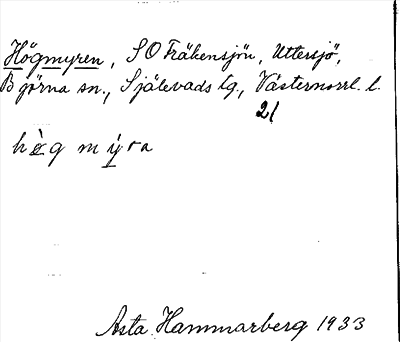 Högmyren, SO Fräkensjön, Uttersjö,
Björna sn., Själevads tg., Västernorrl. l.
21
hög mýra
Asta Hammarberg 1933